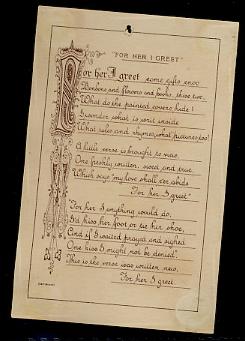 "FOR HER I GREET"
For her I greet some gifts enoo
Bonbons and flowers and books, thise two
What do the painted covers hide!
I wonder what is writ inside
What tales and rhymes, what pictures too!
A little verse is brought to view
One freshly written, word and true
Which says "my love shall er abide
For her I greet"
For her I anything would do,
I'd kiss her foot or tie her shoe,
And if I waited prayed and sighed
One kiss I might not be denied,
This is the verse was written new,
For her I greet